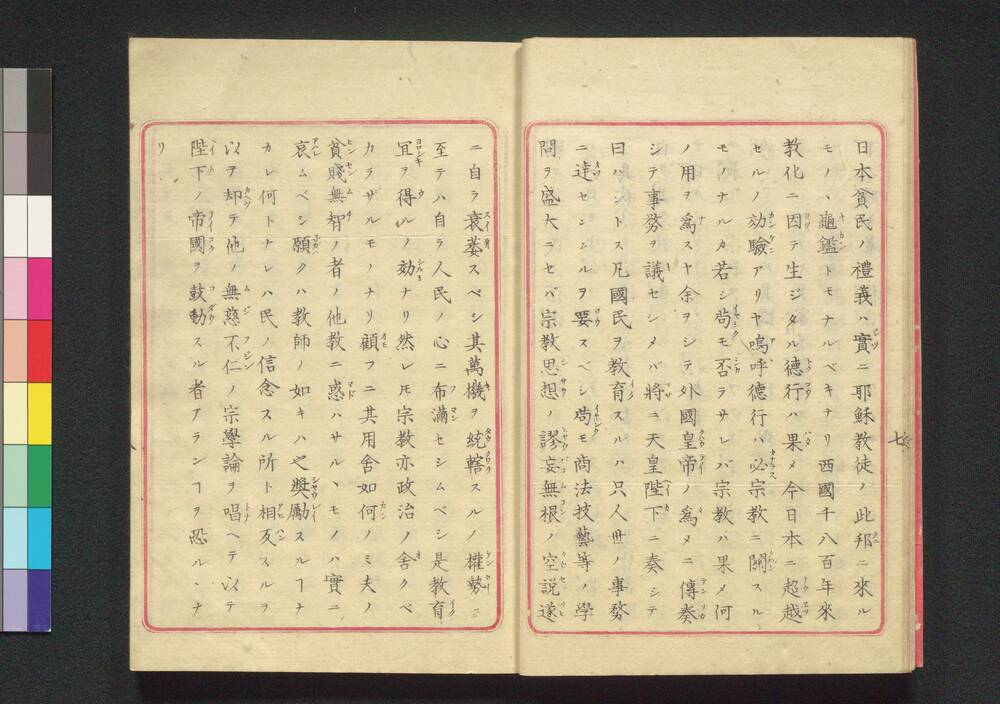 日本貧民ノ禮義ハ實ニ耶穌教徒ノ此邦ニ來ル
モノヽ龜鑑トモナルベキナリ西國千八百年來
教化ニ因テ生ジタル德行ハ果メ今日本ニ超越
セルノ効驗アリヤ嗚呼德行ハ必宗教ニ關スル
モノナルカ若シ苟モ否ラサレバ宗教ハ果メ何
ノ用ヲ爲スヤ余ヲシテ外國皇帝ノ爲メニ傳奏
シテ事務ヲ議セシメバ將ニ天皇陛下ニ奏シテ
曰ハントス凡國民ヲ教育スルハ只人世ノ事務
ニ達セシムルヲ要スベシ苟モ商法技藝等ノ學
問ヲ盛大ニセバ宗教思想ノ謬妄無根ノ空説遂
七
ニ自ラ衰萎スベシ其萬機ヲ統轄スルノ權勢ニ
至テハ自ラ人民ノ心ニ布滿セシムベシ是教育
宜ヲ得ルノ効ナリ然レ𪜈宗教亦政治ノ舍クベ
カラザルモノナリ顧フニ其用舍如何ノミ夫ノ
貧賤無智ノ者ノ他教ニ惑ハサルヽモノハ實ニ
哀ムベシ願クハ教師ノ如キハ之獎勵スルヿナ
カレ何トナレハ民ノ信念スル所ト相反スルヲ
以テ却テ他ノ無慈不仁ノ宗學論ヲ唱ヘテ以テ
陛下ノ帝國ヲ鼓動スル者アランヿヲ恐ルヽナ
リ